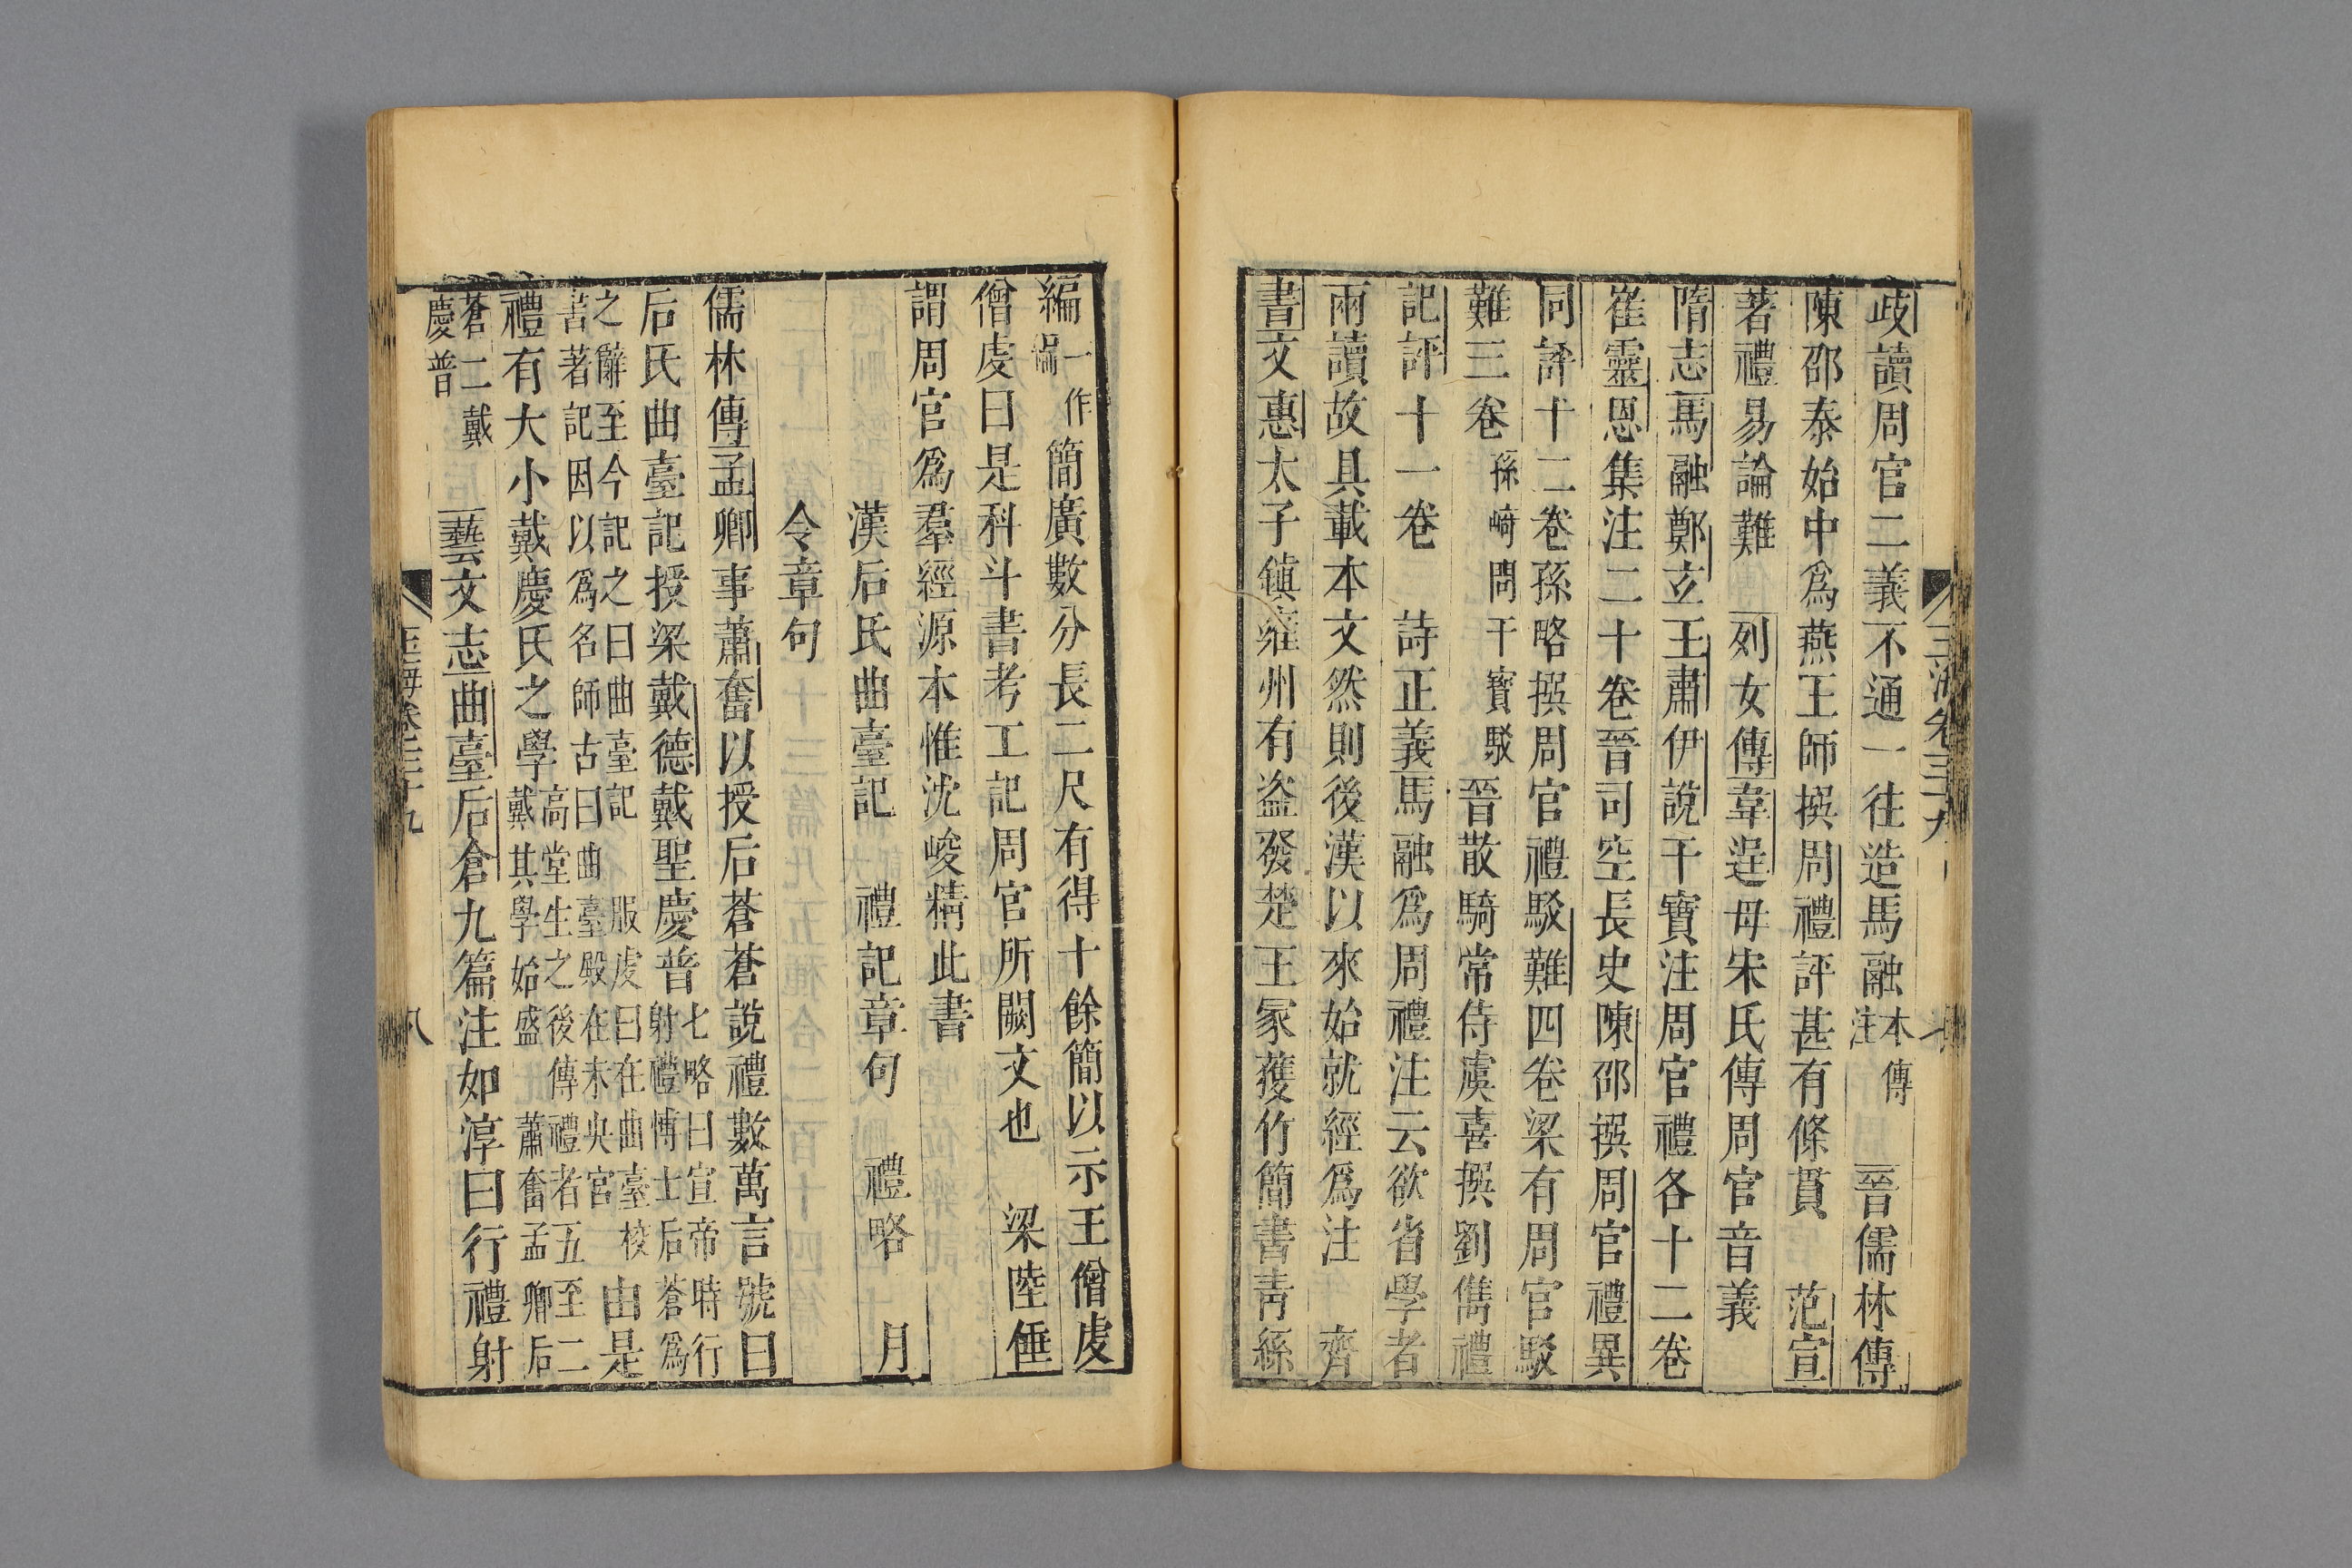 玉海卷三十九
歧讀周官二義不通一往造馬融本傳注 晉儒林傳
陳邵泰始中爲燕王師撰周禮評甚有條貫 范宣
著禮易論難 列女傳韋逞母宋氏傳周官音義
隋志馬融鄭玄王肅伊說干寶注周官禮各十二卷
崔靈恩集注二十卷晉司空長史陳邵撰周官禮異
同評十二卷孫略撰周官禮駁難四卷梁有周官駁
難三卷孫崎問干寶駁晉散騎常侍虞喜撰劉儁禮
記評十一卷 詩正義馬融爲周禮注云欲省學者
兩讀故具載本文然則後漢以來始就經爲注 齊
書文惠太子鎮雍州有盗發楚王冢獲竹簡書青絲
編一作編簡廣數分長二尺有得十餘簡以示王僧虔
僧虔曰是科斗書考工記周官所闕文也 梁陸倕
謂周官爲羣經源本惟沈峻精此書
漢后氏曲臺記 禮記章句 禮略 月
令章句
儒林傳孟卿事蕭奮以授后蒼蒼說禮數萬言號曰
后氏曲臺記授梁戴德戴聖慶普七略曰宣帝時行射禮博士后蒼爲
之辭至今記之曰曲臺記 服虔曰在曲臺校書著記因以爲名師古曰曲臺殿在未央宮由是
禮有大小戴慶氏之學高堂生之後傳禮者五至二戴其學始盛 蕭奮孟卿后
蒼二戴慶普 藝文志曲臺后倉九篇注如淳曰行禮射
玉海卷三十九 八